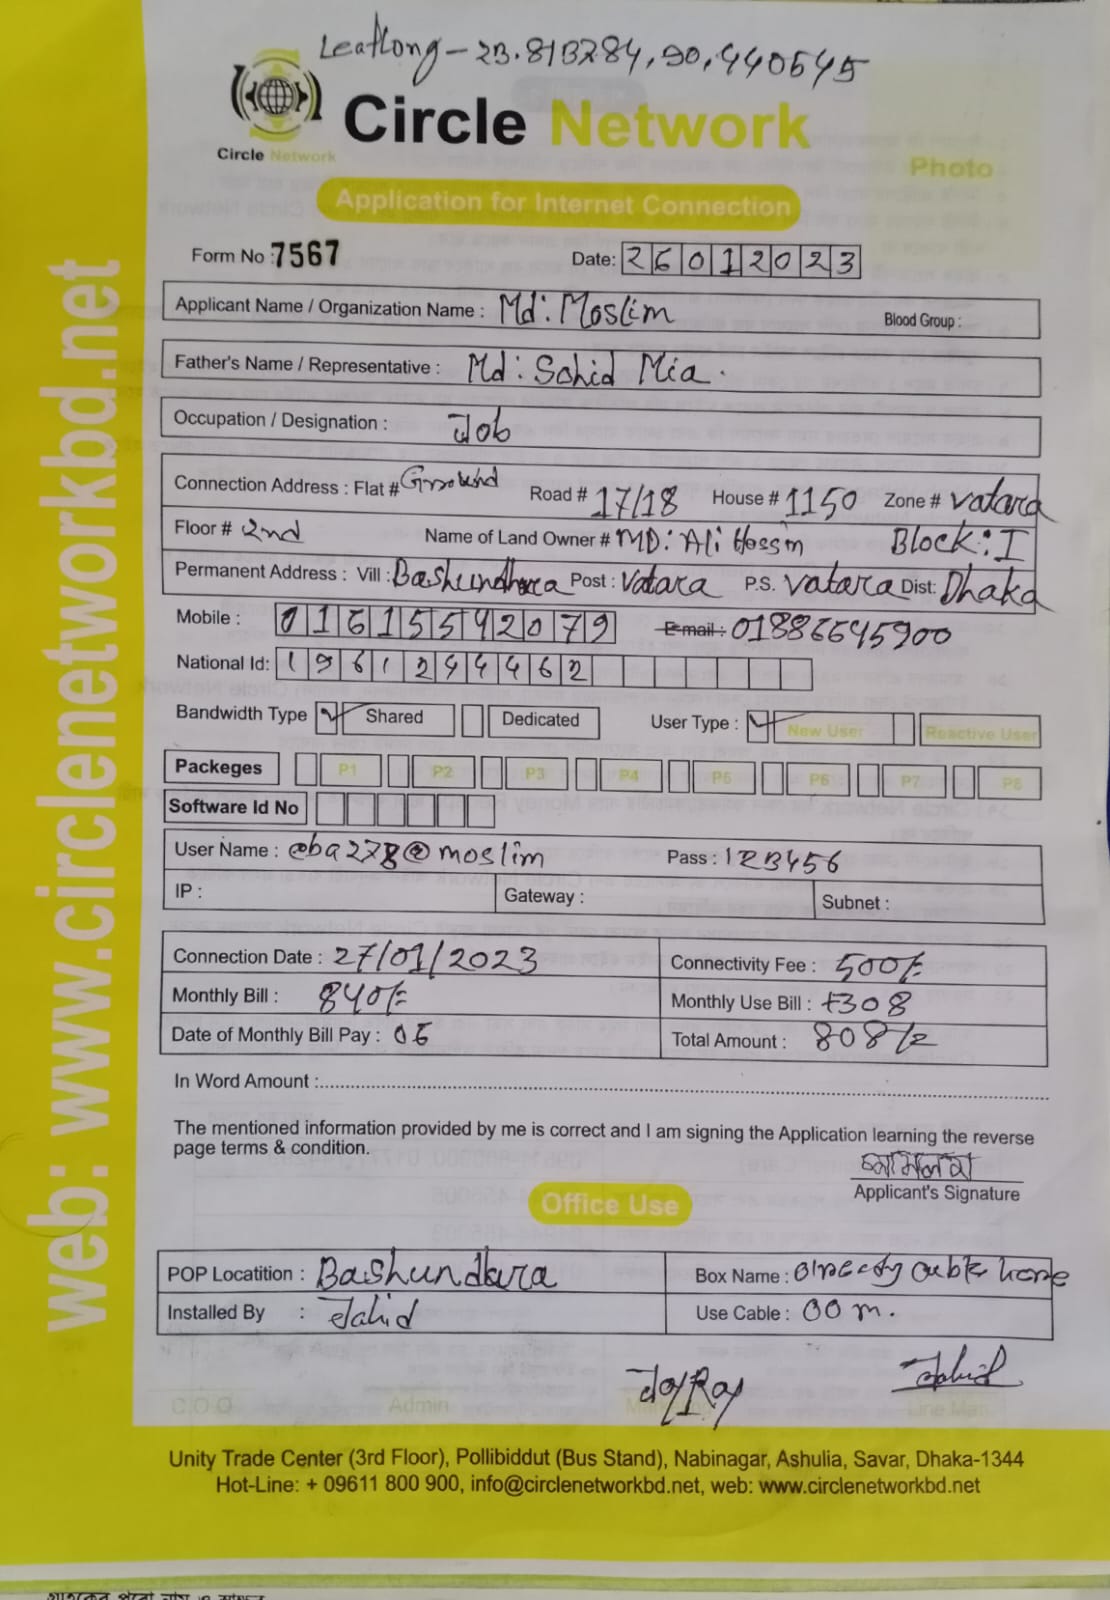 Leatlong - 23.813784, 90.440545
Circle Network
Circle Network
Photo
Application for Internet Connection
Form No : 7567 Date: 26012023
Applicant Name / Organization Name : Md: Moslim Blood Group :
Father's Name / Representative : Md: Sohid Mia.
Occupation / Designation : Job
Connection Address : Flat # Ground Road # 17/18 House # 1150 Zone # Vatara
Floor # 2nd Name of Land Owner # MD: Ali Hossin Block: I
Permanent Address : Vill : Bashundhara Post : Vatara P.S. Vatara Dist: Dhaka
Mobile : 01615542079 E-mail: 01886645900
National Id: 1961244462
Bandwidth Type ✓ Shared Dedicated User Type : ✓ New User Reactive User
Packeges P1 P2 P3 P4 P5 P6 P7 P8
Software Id No
User Name : @ba278@moslim Pass : 123456
IP : Gateway : Subnet :
Connection Date : 27/01/2023 Connectivity Fee : 500/=
Monthly Bill : 840/= Monthly Use Bill : +308
Date of Monthly Bill Pay : 05 Total Amount : 808/=
In Word Amount :
The mentioned information provided by me is correct and I am signing the Application learning the reverse
page terms & condition.
Applicant's Signature
Office Use
POP Locatition : Bashundhara Box Name :
Installed By : Jahid Use Cable : 00 m.
Joy Roy Jahid
C.O.O Admin Marketing Line Man
Unity Trade Center (3rd Floor), Pollibiddut (Bus Stand), Nabinagar, Ashulia, Savar, Dhaka-1344
Hot-Line: + 09611 800 900, info@circlenetworkbd.net, web: www.circlenetworkbd.net
web: www.circlenetworkbd.net